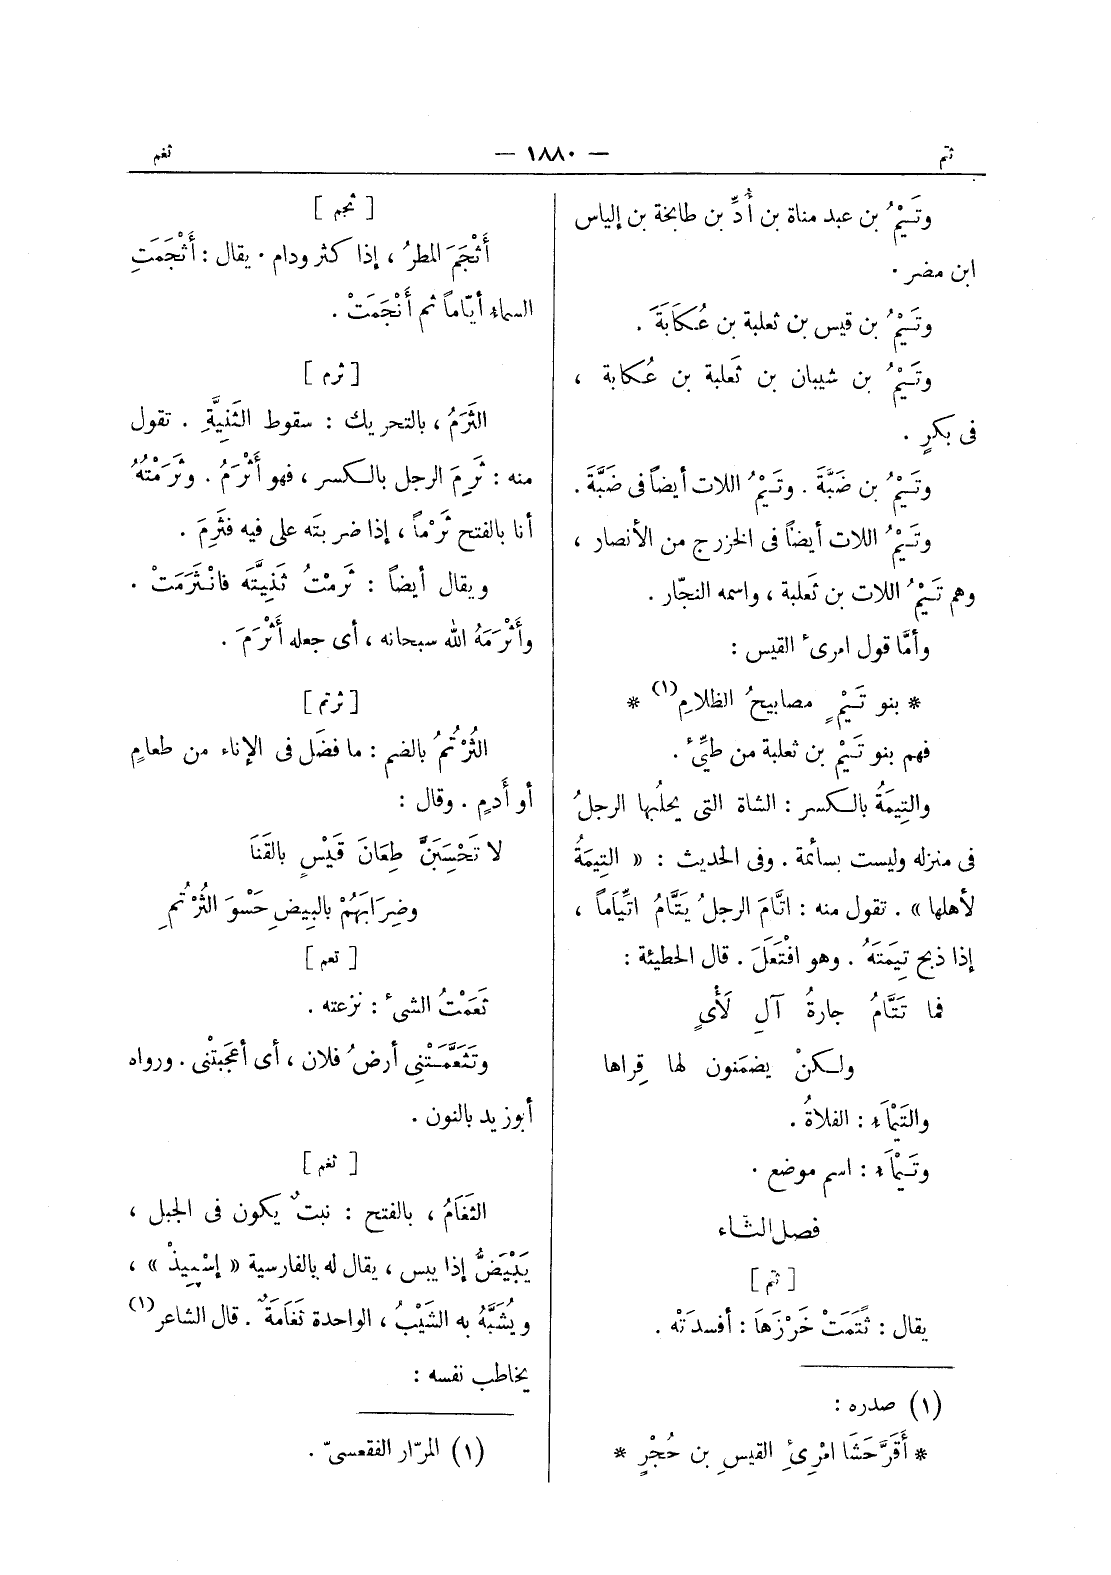 ثتم
— ١٨٨٠ —
ثغم
وتَيْمُ بن عبد مناة بن أُدِّ بن طابخة بن إلياس
ابن مضر .
وتَيْمُ بن قيس بن ثعلبة بن عُكَابَةَ .
وتَيْمُ بن شيبان بن ثَعلبة بن عُكابة ،
فى بكرٍ .
وتَيْمُ بن ضَبَّةَ . وتَيْمُ اللات أيضاً فى ضَبَّةَ .
وتَيْمُ اللات أيضاً فى الخزرج من الأنصار ،
وهم تَيْمُ اللات بن ثَعلبة ، واسمه النجّار .
وأمَّا قول امرىء القيس :
* بنو تَيْمٍ مصابيحُ الظلامِ (١) *
فهم بنو تَيْم بن ثعلبة من طيِّىء .
والتِيمَةُ بالكسر : الشاة التى يحلُبها الرجلُ
فى منزله وليست بسائمة . وفى الحديث : « التِيمَةُ
لأهلها » . تقول منه : اتَّامَ الرجلُ يَتَّامُ اتِّيَاماً ،
إذا ذبح تِيمَتَهُ . وهو افْتَعَلَ . قال الحطيئة :
فما تَتَّامُ جارةُ آلِ لَأْىٍ
ولكنْ يضمَنون لها قِراها
والتَيْمَاَء : الفلاةُ .
وتَيْمَاَء : اسم موضع .
فصل الثاء
[ ثتم ]
يقال : ثَتَمَتْ خَرْزَهَا : أفسدَتْه .
(١) صدره :
* أَقَرَّ حَشَا امْرِىءِ القيسِ بن حُجْرٍ *
[ ثجم ]
أَثْجَمَ المطرُ ، إذا كثر ودام . يقال : أَثْجَمَتِ
السماء أيّاماً ثم أَنْجَمَتْ .
[ ثرم ]
الثَرَمُ ، بالتحريك : سقوط الثَنِيَّةِ . تقول
منه : ثَرِمَ الرجل بالكسر ، فهو أَثْرَمُ . وثَرَمْتُهُ
أنا بالفتح ثَرْماً ، إذا ضربتَه على فيه فثَرِمَ .
ويقال أيضاً : ثَرَمْتُ ثَنِيَّتَه فانْثَرَمَتْ .
وأَثْرَمَهُ الله سبحانه ، أى جعله أَثْرَمَ .
[ ثرتم ]
الثُرْتُمُ بالضم : ما فضَل فى الإناء من طعامٍ
أو أَدمٍ . وقال :
لا تَحْسِبَنَّ طِعَانَ قَيْسٍ بالقَنَا
وضِرَابَهُمْ بالبِيضِ حَسْوَ الثُرْتُمِ
[ ثعم ]
ثَعَمْتُ الشىء : نزعته .
وتَثَعَّمَتْنِى أرضُ فلان ، أى أعجَبتْنى . ورواه
أبو زيد بالنون .
[ ثغم ]
الثَغَامُ ، بالفتح : نبتٌ يكون فى الجبل ،
يَبْيَضُّ إذا يبس ، يقال له بالفارسية « إسْپِيذْ » ،
ويُشَبَّهُ به الشَيْبُ ، الواحدة ثَغَامَةٌ . قال الشاعر (١)
يخاطب نفسه :
(١) المرّار الفقعسىّ .